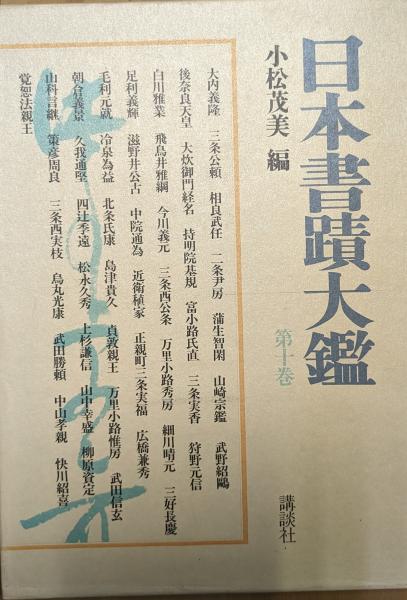 日本書蹟大鑑
第十巻
小松茂美 編
講談社
大内義隆 三条公頼 相良武任 二条尹房 蒲生智閑 山崎宗鑑 武野紹鷗
後奈良天皇 大炊御門経名 持明院基規 富小路氏直 三条実香 狩野元信
白川雅業 飛鳥井雅綱 今川義元 三条西公条 万里小路秀房 細川晴元 三好長慶
足利義輝 滋野井公古 中院通為 近衛稙家 正親町三条実福 広橋兼秀
毛利元就 冷泉為益 北条氏康 島津貴久 貞敦親王 万里小路惟房 武田信玄
朝倉義景 久我通堅 四辻季遠 松永久秀 上杉謙信 山中幸盛 柳原資定
山科言継 策彦周良 三条西実枝 烏丸光康 武田勝頼 中山孝親 快川紹喜
覚恕法親王